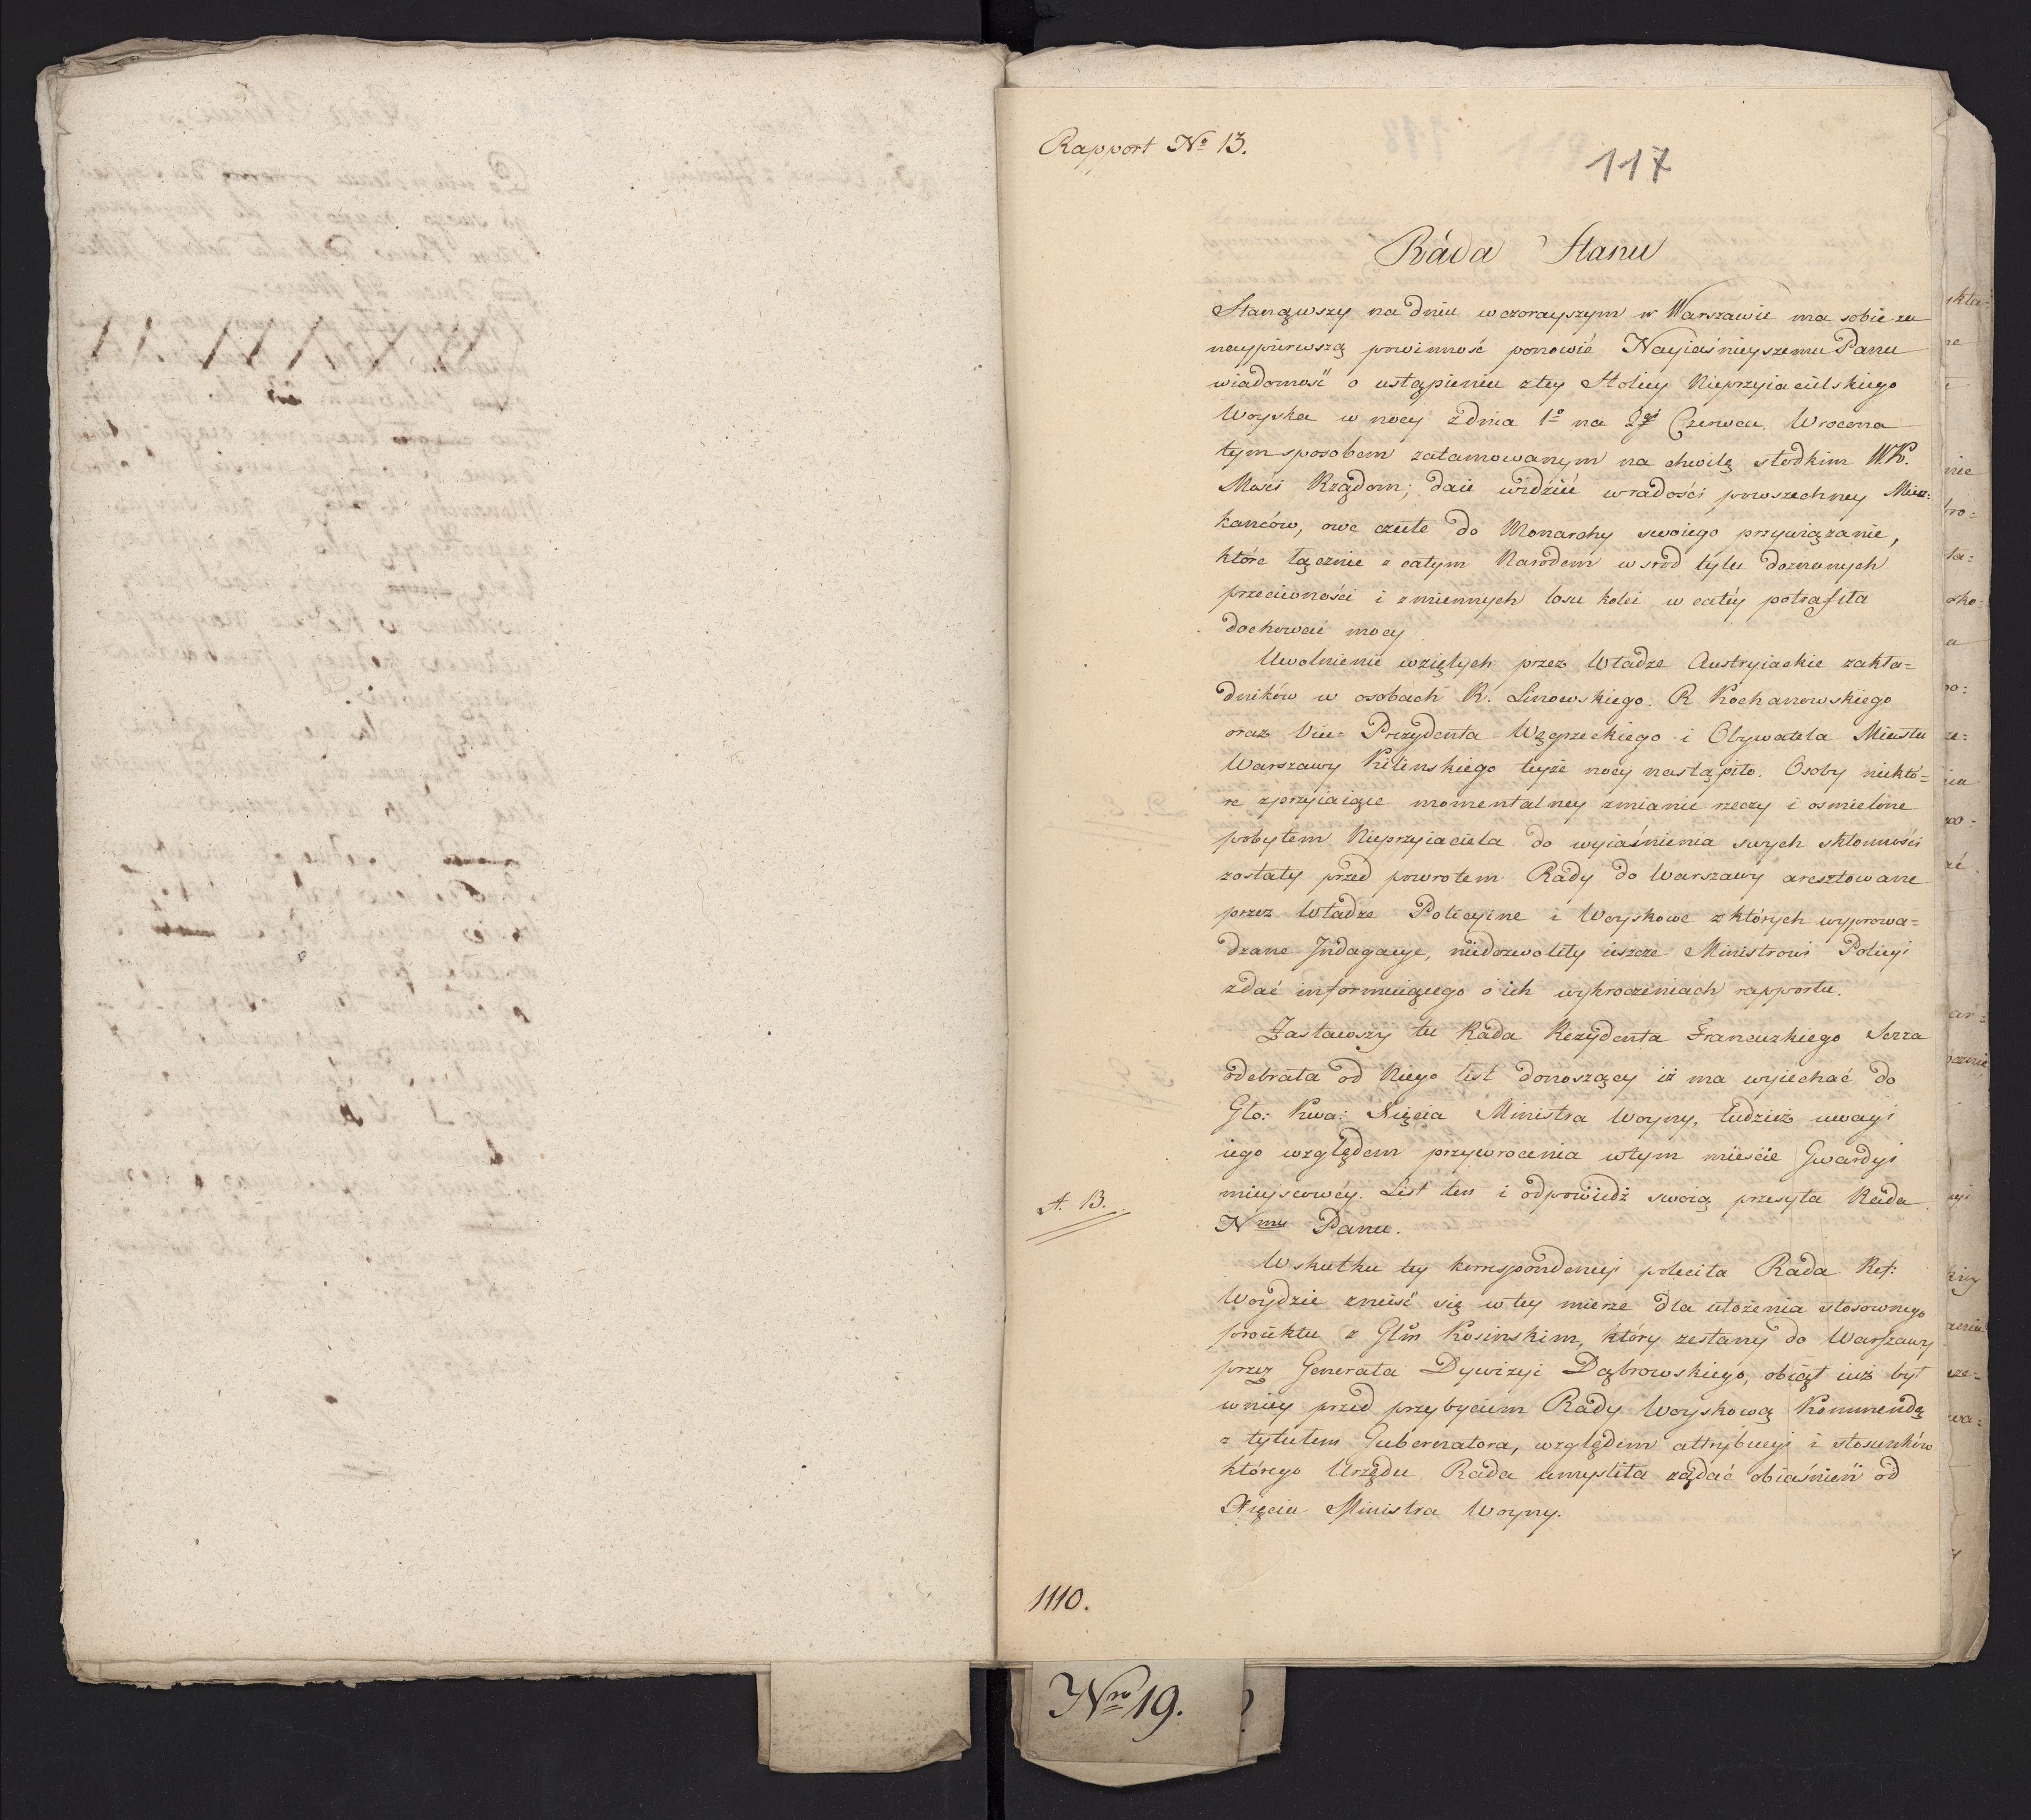 Rapport Nº 13.
117
Ráda Stanu
Stanąwszy na dniu wczorayszym w Warszawie ma sobie za
naypierwszą powinność ponowić Nayiaśnieyszemu Panu
wiadomość o ustąpieniu z tey Stolicy Nieprzyiacielskiego
Woyska w nocy z dnia 1º na 2gi Czerwca. Wrocona
tym sposobem zatamowanym na chwilę słodkim W.K.
Mości Rządom; daie widzieć w radości powszechney Miesz:
kańców, owe czułe do Monarchy swoiego przywiązanie,
które łącznie z całym Narodem wsrod tylu doznanych
przeciwności i zmiennych losu kolei w całéy potrafiła
dochować mocy
Uwolnienie wziętych przez Władze Austryiackie zakła=
dników w osobach R. Linowskiego. R Kochanowskiego
oraz Vice-Prezydenta Węgrzeckiego i Obywatela Miasta
Warszawy Kilinskiego teyże nocy nastąpiło. Osoby niektó=
re zprzyiaiące momentalney zmianie rzeczy i osmielone
pobytem Nieprzyiaciela do wyiaśnienia swych skłonności
zostały przed powrotem Rady do Warszawy aresztowane
przez Władze Policyine i Woyskowe z których wyprowa=
dzane Jndagacye, niedozwoliły ieszcze Ministrowi Policyi
zdać informuiącego o ich wykroczeniach rapportu.
Zastawszy tu Ráda Rezydenta Francuzkiego Serra
odebrała od Niego list donoszący iż ma wyiechać do
Gło: Kwa: Xięcia Ministra Woyny, tudzież uwagi
iego względem przywrocenia w tym mieście Gwardyi
mieyscowéy. List ten i odpowiedź swoią przesyła Ráda
A. B.
Nmu Panu.
W skutku tey korrespondencyi poleciła Rada Ref:
Woydzie znieść się w tey mierze dla ułożenia stosownego
proiektu z Głm Kosinskim, który zesłany do Warszawy
przez Generała Dywizyi Dąbrowskiego, obiął iuż był
w niey przed przybyciem Rady Woyskową Kommendę
z tytułem Gubernatora, względem attrybucyi i stosunków
którego Urzędu Rada umyśliła żądać obiaśnień od
Xięcia Ministra Woyny.
1110.
Nro 19.